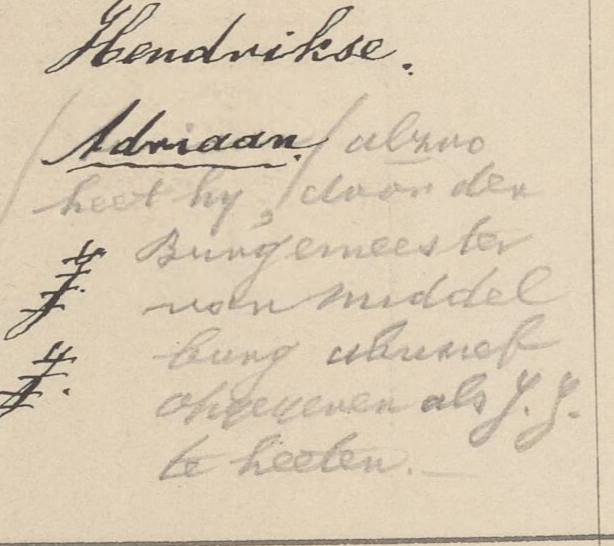 Hendrikse.
Adriaan / alzoo
heet hy, / door den
J. Burgemeester
van Middel
J. burg abusief
opgegeven als J. J.
te heeten. —